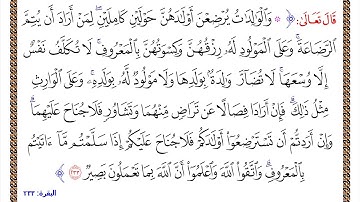 قَالَ تَعَالَىٰ: ﴿ ۞ وَٱلْوَٰلِدَٰتُ يُرْضِعْنَ أَوْلَٰدَهُنَّ حَوْلَيْنِ كَامِلَيْنِۖ لِمَنْ أَرَادَ أَن يُتِمَّ
ٱلرَّضَاعَةَۚ وَعَلَى ٱلْمَوْلُودِ لَهُۥ رِزْقُهُنَّ وَكِسْوَتُهُنَّ بِٱلْمَعْرُوفِۚ لَا تُكَلَّفُ نَفْسٌ
إِلَّا وُسْعَهَاۚ لَا تُضَآرَّ وَٰلِدَةُۢ بِوَلَدِهَا وَلَا مَوْلُودٌ لَّهُۥ بِوَلَدِهِۦۚ وَعَلَى ٱلْوَارِثِ
مِثْلُ ذَٰلِكَۗ فَإِنْ أَرَادَا فِصَالًا عَن تَرَاضٍ مِّنْهُمَا وَتَشَاوُرٍ فَلَا جُنَاحَ عَلَيْهِمَاۗ
وَإِنْ أَرَدتُّمْ أَن تَسْتَرْضِعُوٓا۟ أَوْلَٰدَكُمْ فَلَا جُنَاحَ عَلَيْكُمْ إِذَا سَلَّمْتُم مَّآ ءَاتَيْتُم
بِٱلْمَعْرُوفِۗ وَٱتَّقُوا۟ ٱللَّهَ وَٱعْلَمُوٓا۟ أَنَّ ٱللَّهَ بِمَا تَعْمَلُونَ بَصِيرٌ ٢٣٣ ﴾
البقرة: ٢٣٣